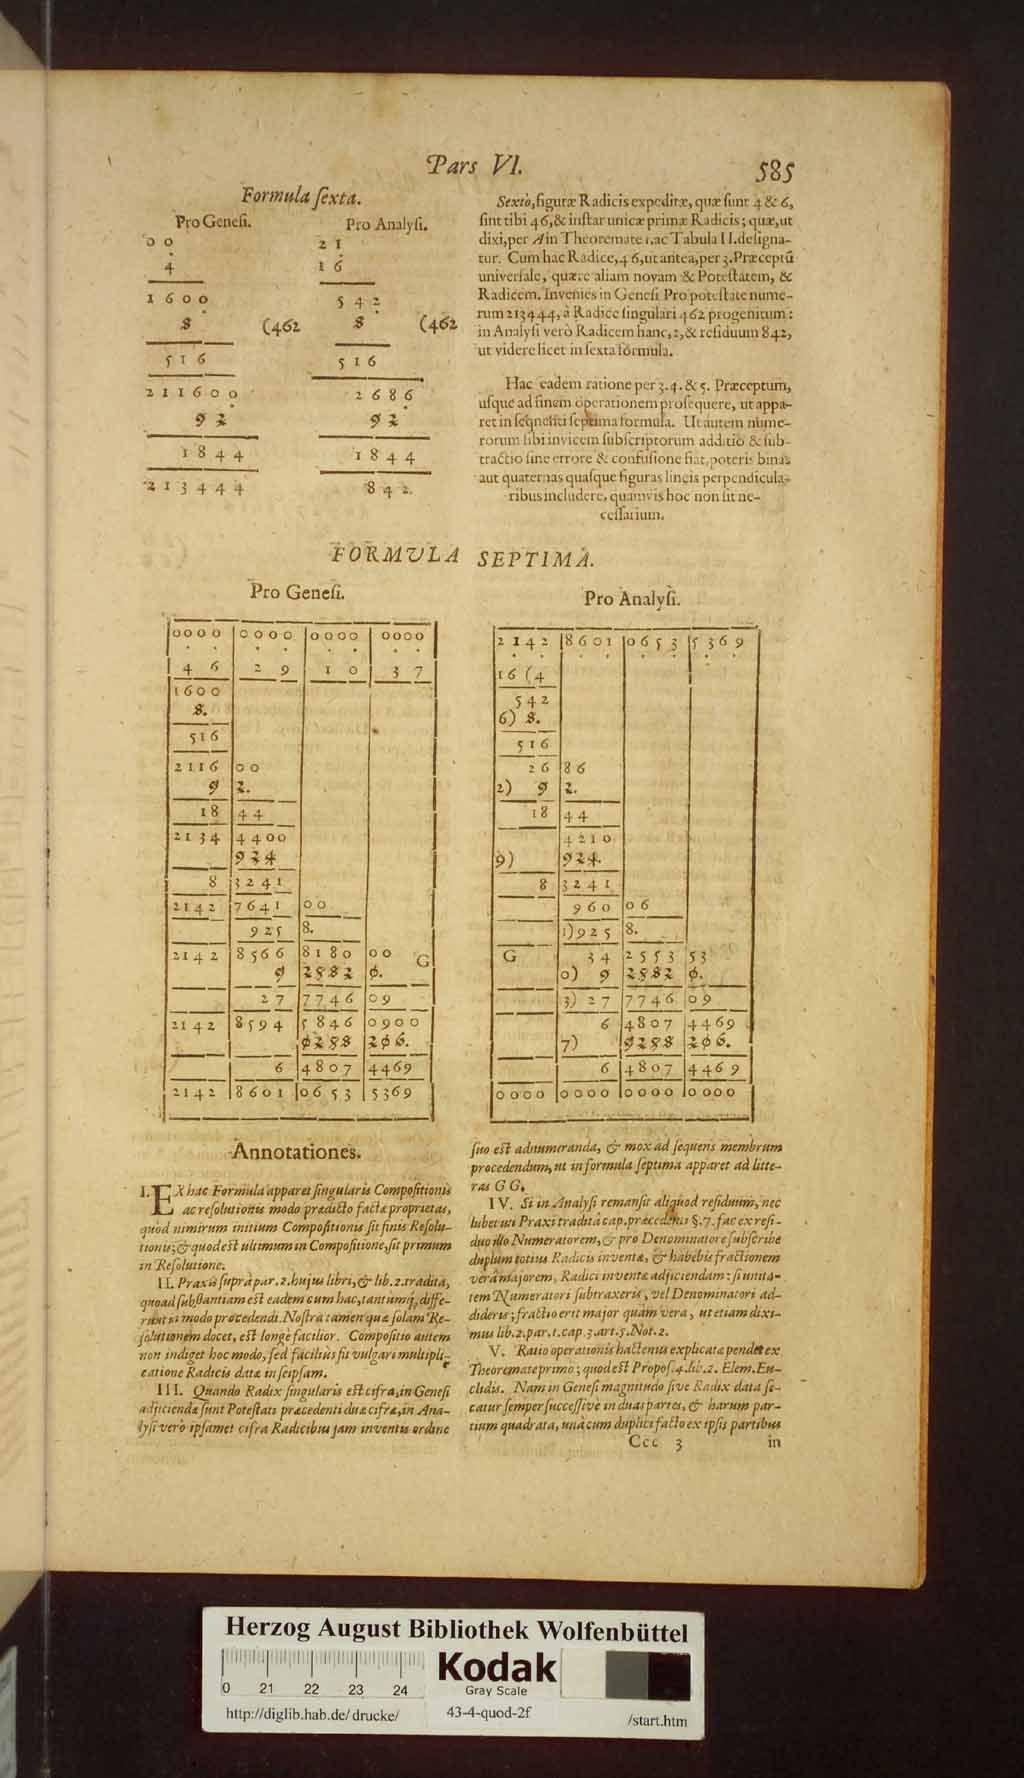 Pars VI.
585
Formula ſexta.
Pro Geneſi.
0 0
4
1 6 0 0
8
(462
5 1 6
2 1 1 6 0 0
9 2
1 8 4 4
2 1 3 4 4 4
Pro Analyſi.
2 1
1 6
5 4 2
8
(462
5 1 6
2 6 8 6
9 2
1 8 4 4
8 4 2.
Sextò, figuræ Radicis expeditæ, quæ ſunt 4 & 6,
ſint tibi 46, & inſtar unicæ primæ Radicis; quæ, ut
dixi, per A in Theoremate 1. ac Tabula II. deſigna-
tur. Cum hac Radice, 46, ut antea, per 3. Præceptū
univerſale, quære aliam novam & Poteſtatem, &
Radicem. Invenies in Geneſi Pro poteſtate nume-
rum 213444, à Radice ſingulari 462 progenitum:
in Analyſi verò Radicem hanc, 2, & reſiduum 842,
ut videre licet in ſexta formula.
Hac eadem ratione per 3. 4. & 5. Præceptum,
uſque ad finem operationem proſequere, ut appa-
ret in ſequenti ſeptima formula. Ut autem nume-
rorum ſibi invicem ſubſcriptorum additio & ſub-
tractio ſine errore & confuſione fiat, poteris binas
aut quaternas quaſque figuras lineis perpendicula-
ribus includere, quamvis hoc non ſit ne-
ceſſarium.
FORMVLA SEPTIMA.
Pro Geneſi.
0000 0000 0000 0000
4 6 2 9 1 0 3 7
1600
8.
516
2116 00
9 2.
18 44
2134 4400
924
8 3241
2142 7641 00
925 8.
2142 8566 8180 00 G
9 2582 0.
27 7746 09
2142 8594 5846 0900
9258 206.
6 4807 4469
2142 8601 0653 5369
Pro Analyſi.
2142 8601 0653 5369
16 (4
542
6) 8.
516
26 86
2) 9 2.
18 44
4210
9) 924.
8 3241
960 06
1) 925 8.
G 34 2553 53
0) 9 2582 0.
3) 27 7746 09
6 4807 4469
7) 9258 206.
6 4807 4469
0000 0000 0000 0000
Annotationes.
I. EX hac Formula apparet ſingularis Compoſitionis
ac reſolutionis modo prædicto factæ proprietas,
quòd nimirum initium Compoſitionis ſit finis Reſolu-
tionis; & quod eſt ultimum in Compoſitione, ſit primum
in Reſolutione.
II. Praxis ſuprà par. 2. hujus libri, & lib. 2. tradita,
quoad ſubſtantiam eſt eadem cum hac, tantumq; diffe-
runt in modo procedendi. Noſtra tamen quæ ſolam Re-
ſolutionem docet, eſt longè facilior. Compoſitio autem
non indiget hoc modo, ſed facilius fit vulgari multipli-
catione Radicis datæ in ſeipſam.
III. Quando Radix ſingularis eſt cifra, in Geneſi
adjiciendæ ſunt Poteſtati præcedenti duæ cifræ, in Ana-
lyſi verò ipſamet cifra Radicibus jam inventis ordine
ſuo eſt adnumeranda, & mox ad ſequens membrum
procedendum, ut in formula ſeptima apparet ad litte-
ras G G.
IV. Si in Analyſi remanſit aliquod reſiduum, nec
lubet uti Praxi traditâ cap. præcedenti §. 7. fac ex reſi-
duo illo Numeratorem, & pro Denominatore ſubſcribe
duplum totius Radicis inventæ, & habebis fractionem
verâ majorem, Radici inventæ adjiciendam: ſi unita-
tem Numeratori ſubtraxeris, vel Denominatori ad-
dideris; fractio erit major quàm vera, ut etiam dixi-
mus lib. 2. par. 1. cap. 3. art. 5. Not. 2.
V. Ratio operationis hactenus explicatæ pendet ex
Theoremate primo; quod eſt Propoſ. 4. lib. 2. Elem. Eu-
clidis. Nam in Geneſi magnitudo ſive Radix data ſe-
catur ſemper ſucceſſivè in duas partes, & harum par-
tium quadrata, unàcum duplici facto ex ipſis partibus
Ccc 3
in
Herzog August Bibliothek Wolfenbüttel
0 21 22 23 24
Kodak
Gray Scale
http://diglib.hab.de/drucke/
43-4-quod-2f
/start.htm